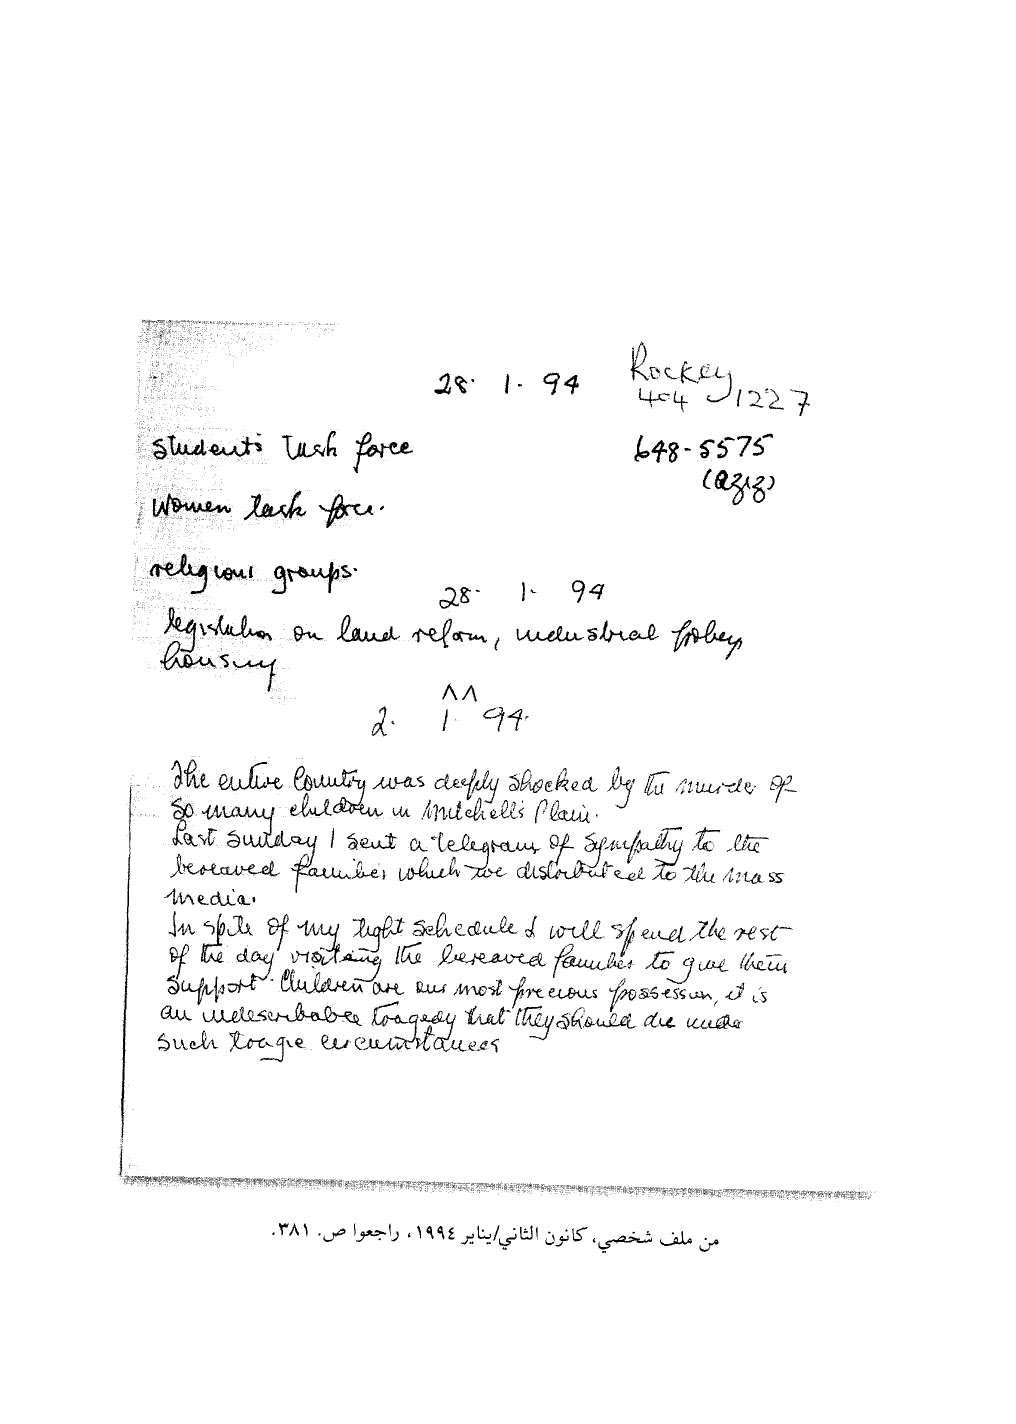 28. 1. 94
Rockey
404 - 1227
Students Task force
648-5575
(aziz)
Women task force.
religious groups.
28. 1. 94
legislation on land reform, industrial policy
housing
^^
2. 1. 94.
The entire Country was deeply shocked by the murder of
so many children in Mitchell's Plain.
Last Sunday I sent a telegram of sympathy to the
bereaved families which we distributed to the mass
media.
In spite of my tight schedule I will spend the rest
of the day visiting the bereaved families to give them
support. Children are our most precious possession, it is
an indescribable tragedy that they should die under
such tragic circumstances
من ملف شخصي، كانون الثاني/يناير ١٩٩٤، راجعوا ص. ٣٨١.